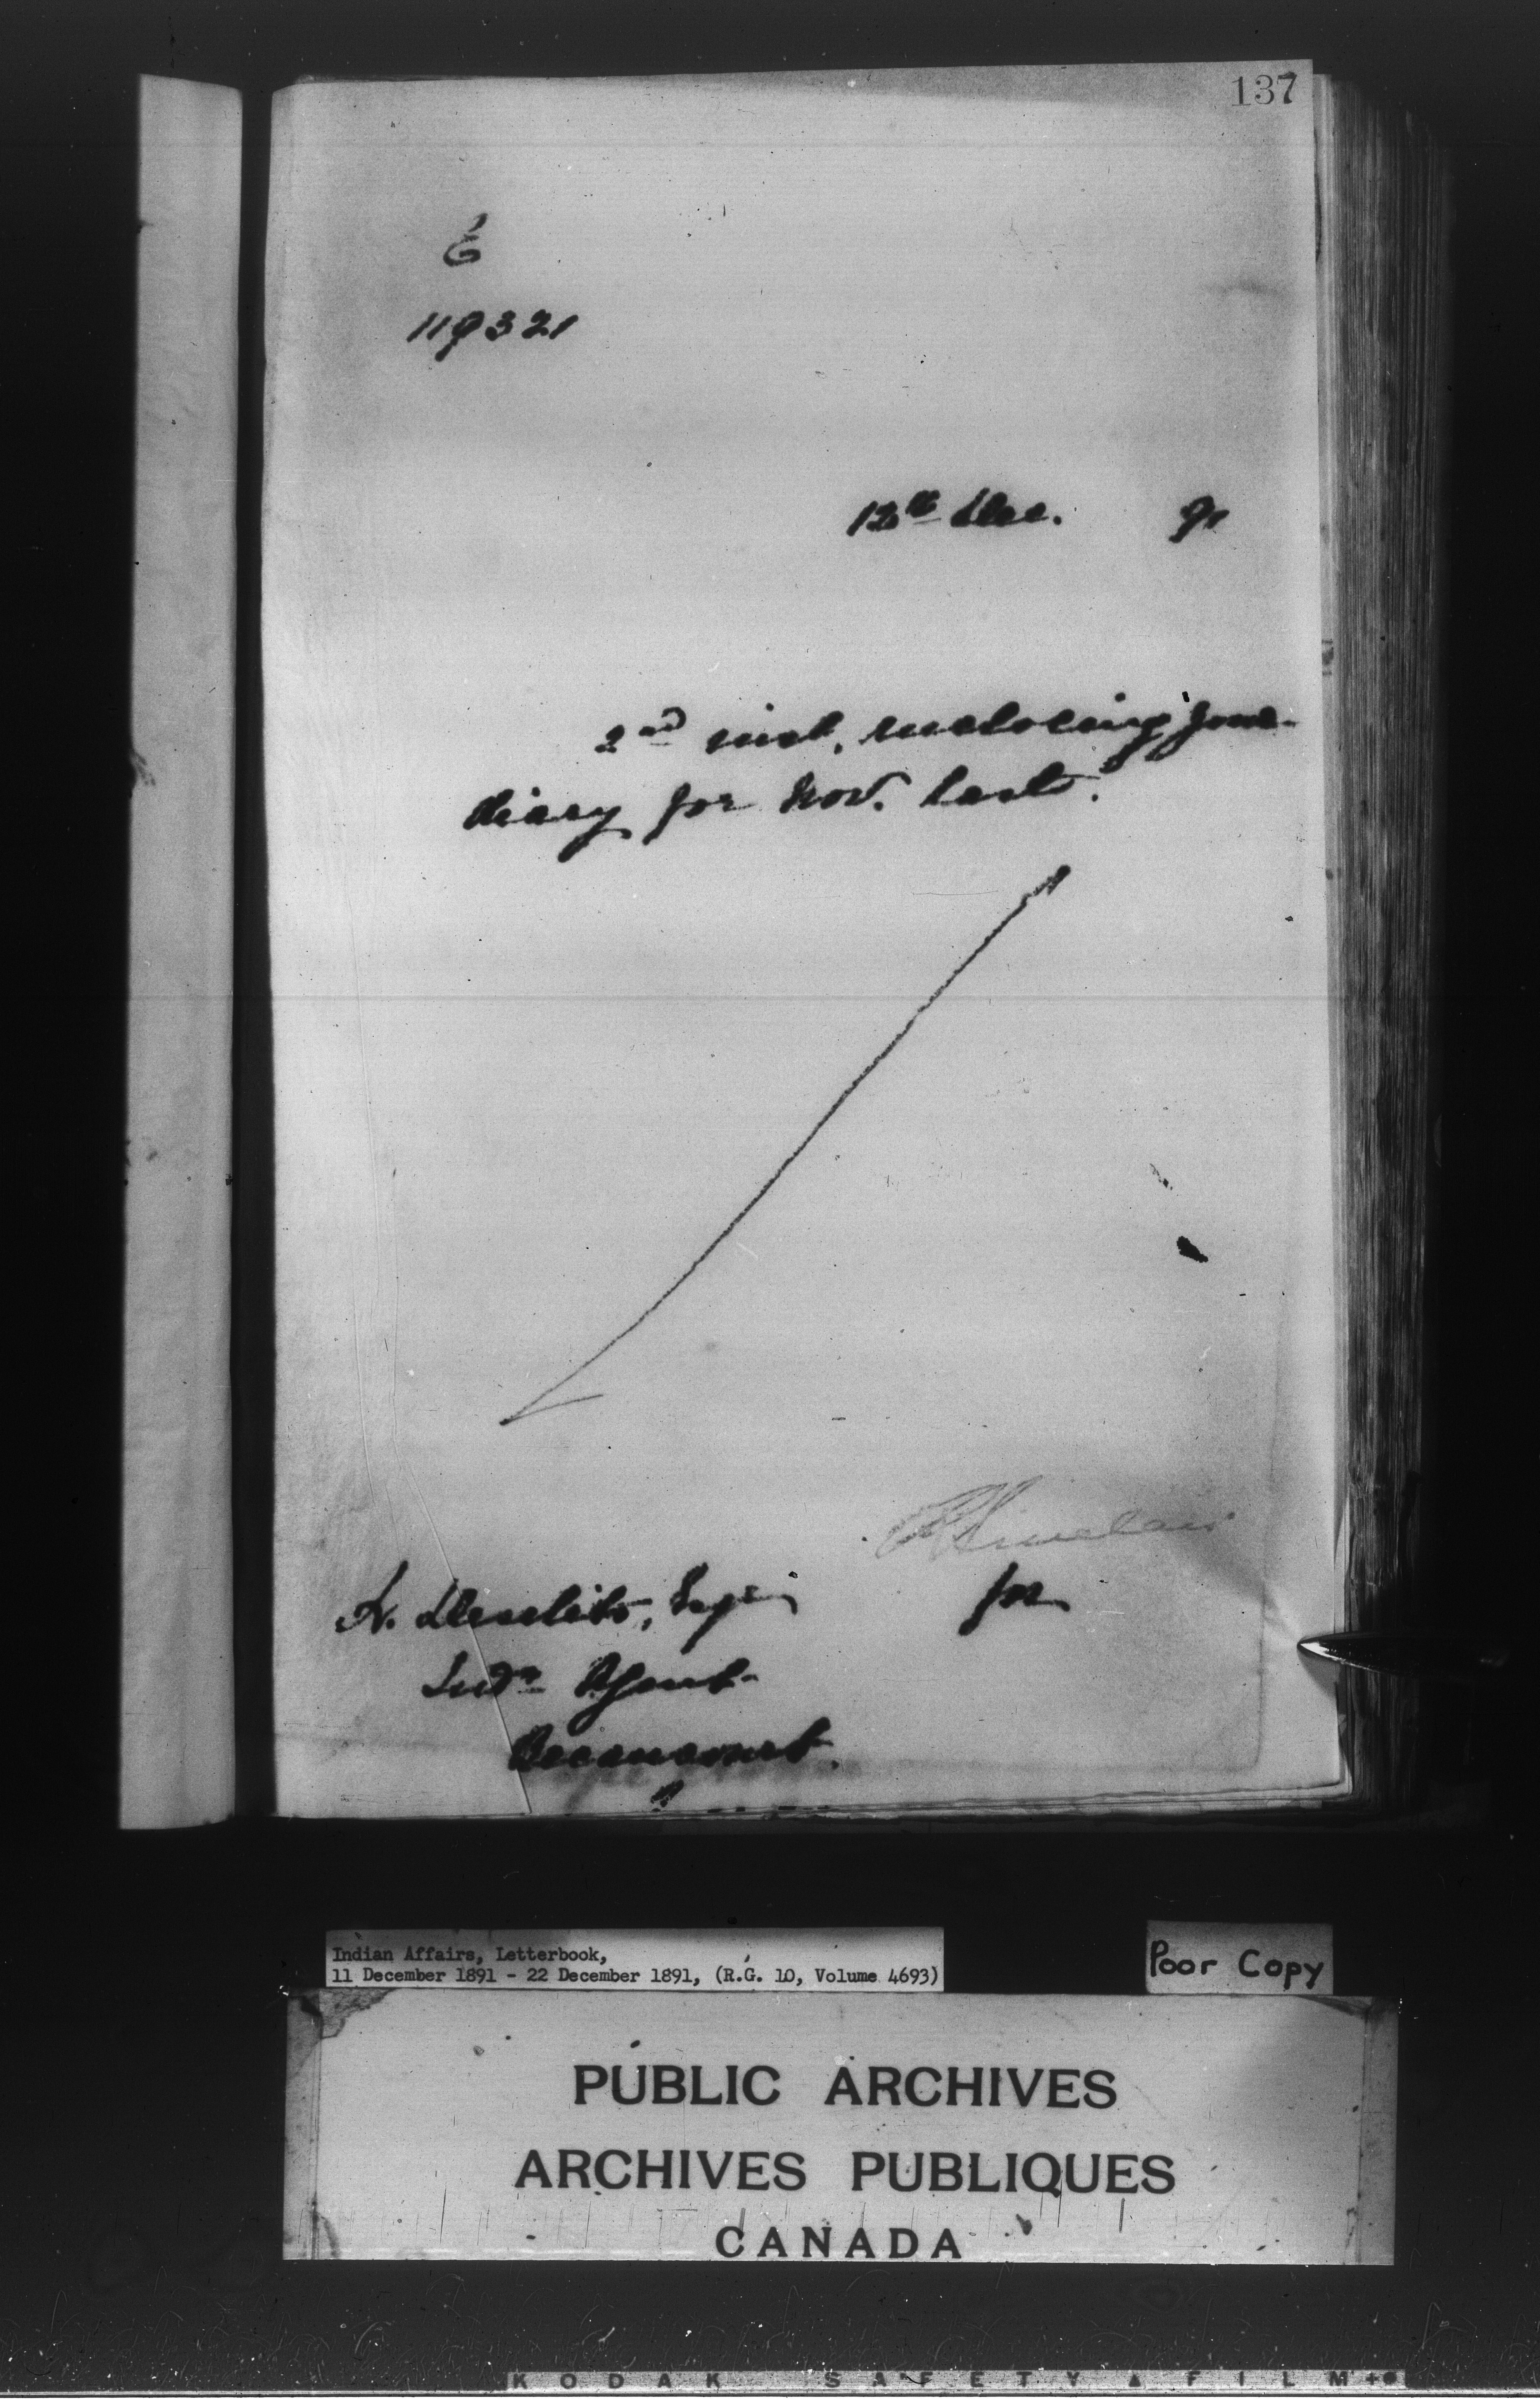 137
E
119321
12th Dec. 91
2nd inst, enclosing your
diary for Nov. last.
Sinclair
for
H. Desilets, Esqr
Indn Agent
Becancourt.
Indian Affairs, Letterbook,
11 December 1891 - 22 December 1891, (R.G. 10, Volume 4693)
Poor Copy
PUBLIC ARCHIVES
ARCHIVES PUBLIQUES
CANADA
KODAK SAFETY FILM